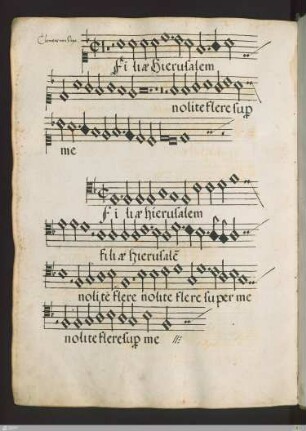 Fi liæ Hierusalem
nolite flere sup
me
Fi liæ Hierusalem
fi li æ Hierusalē
nolite flere nolite flere super me
nolite flere sup me